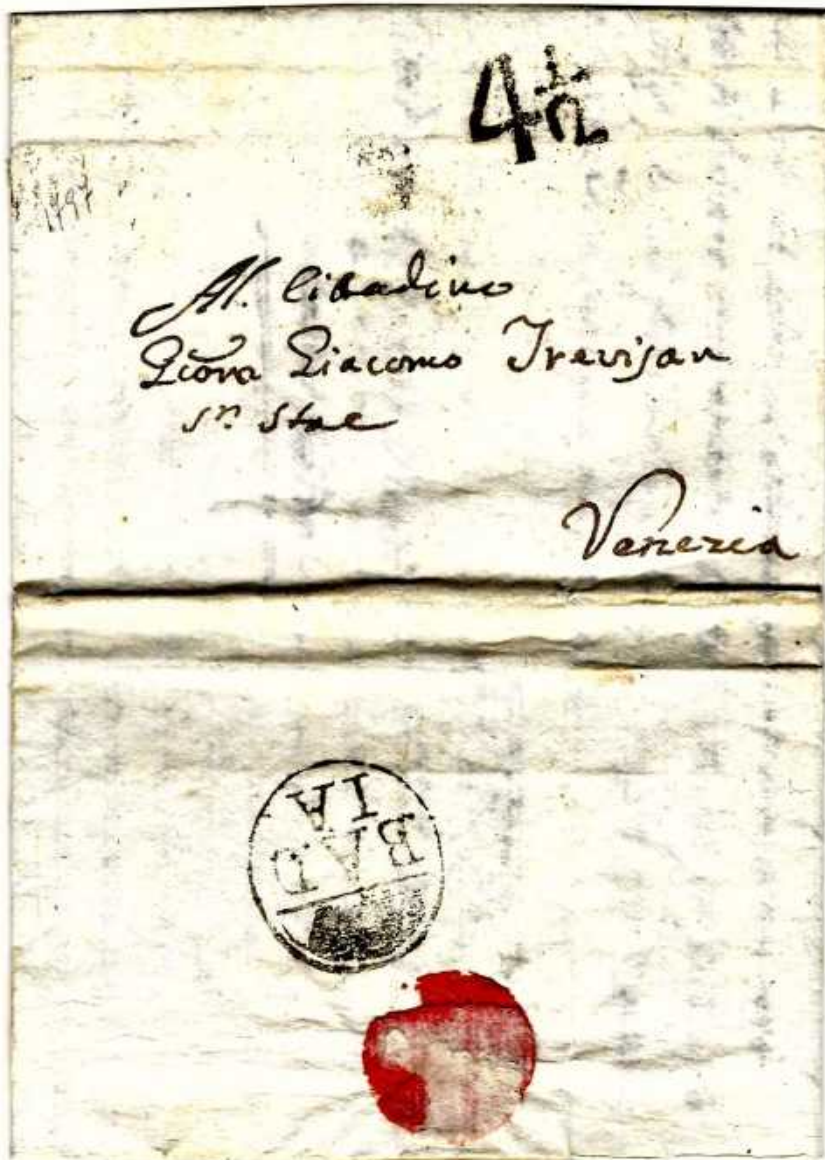 4 1/2
1797
Al. Citadino
Giōva Giacomo Trevisan
Sn. Stae
Venezia
BAD
IA